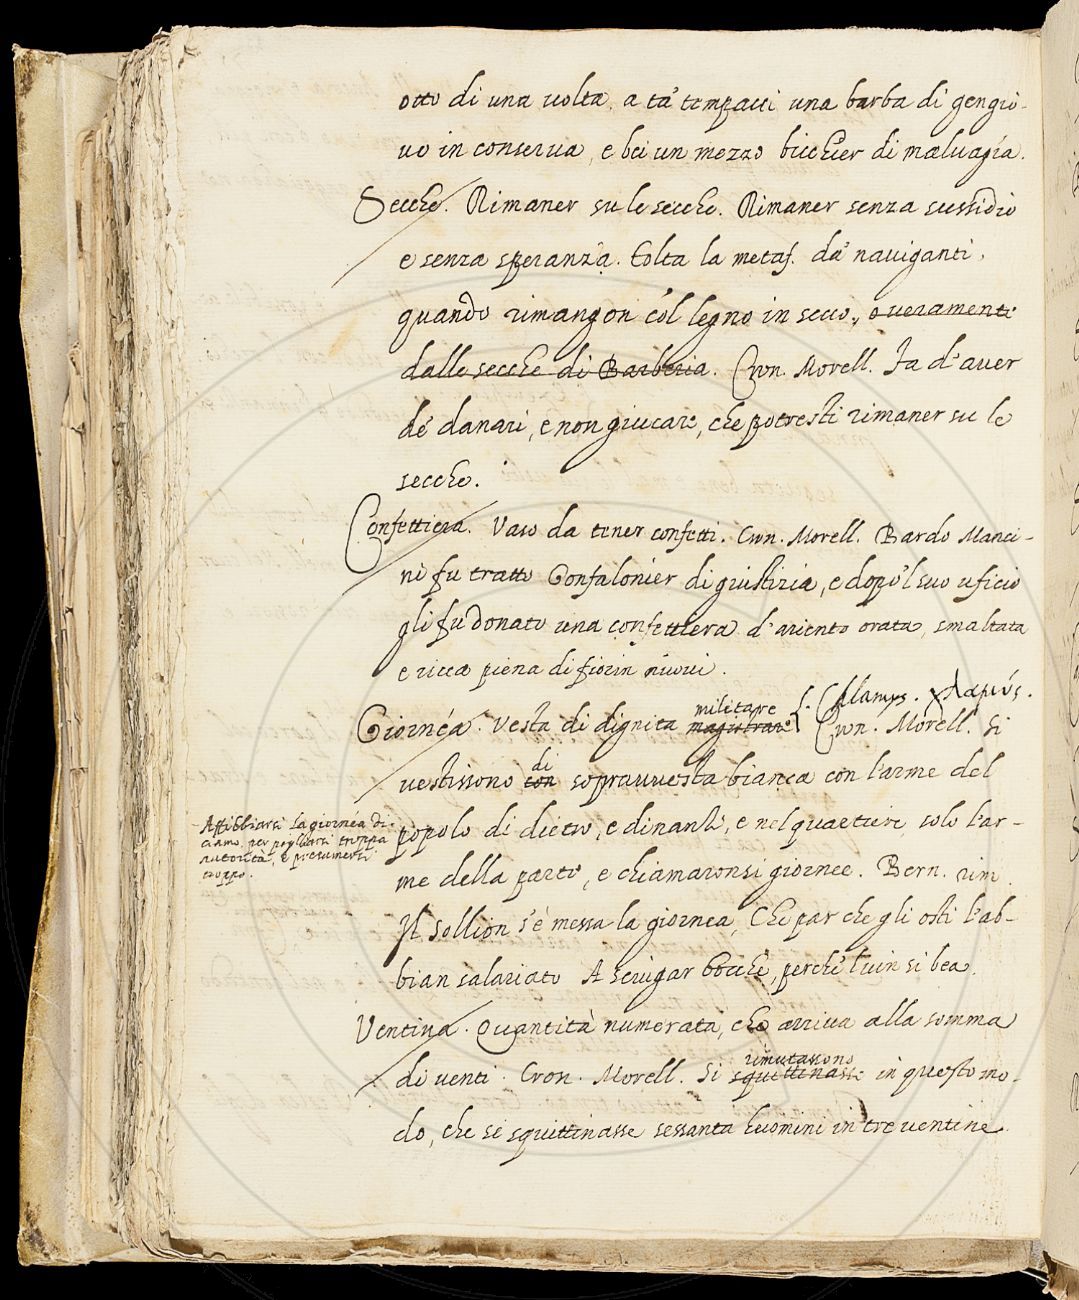 otto di una uolta, a tà tempacci una barba di gengio-
uo in conserua, e bei un mezzo bicchier di maluagìa.
Secche. Rimaner su le secche. Rimaner senza sussidio
e senza speranza. Tolta la metaf. da' nauiganti,
quando rimangon co'l legno in secco, o ueramente
dalle secche di Barberia. Cron. Morell. Fa d'auer
de' danari, e non giucare, che potresti rimaner su le
secche.
Confettiera. Vaso da tener confetti. Cron. Morell. Bardo Manci-
ni fu tratto Gonfalonier di giustizia, e dopo'l suo uficio
gli fu donato una confettiera d'ariento orata, smaltata
e ricca piena di fiorin nuoui.
militare {. Chlamys. χλαμύς.
Giornéa. Vesta di dignita magistrale Cron. Morell. Si
di
uestissono con soprauuesta bianca con l'arme del
popolo di dietro, e dinanzi, e nel quartiere, solo l'ar-
me della parte, e chiamaronsi giornee. Bern. rim.
Il sollion s'è messa la giornea, Che par che gli osti l'ab-
bian salariato A sciugar bocche, perche'l uin si bea.
Affibbiarsi la giornéa di-
ciamo, per pigliarsi troppa
autorità, e presumersi
troppo.
Ventina. Quantità numerata, che arriua alla somma
rimutassono
di uenti. Cron. Morell. Si squittinasse in questo mo-
do, che si squittinasse sessanta huomini in tre uentine